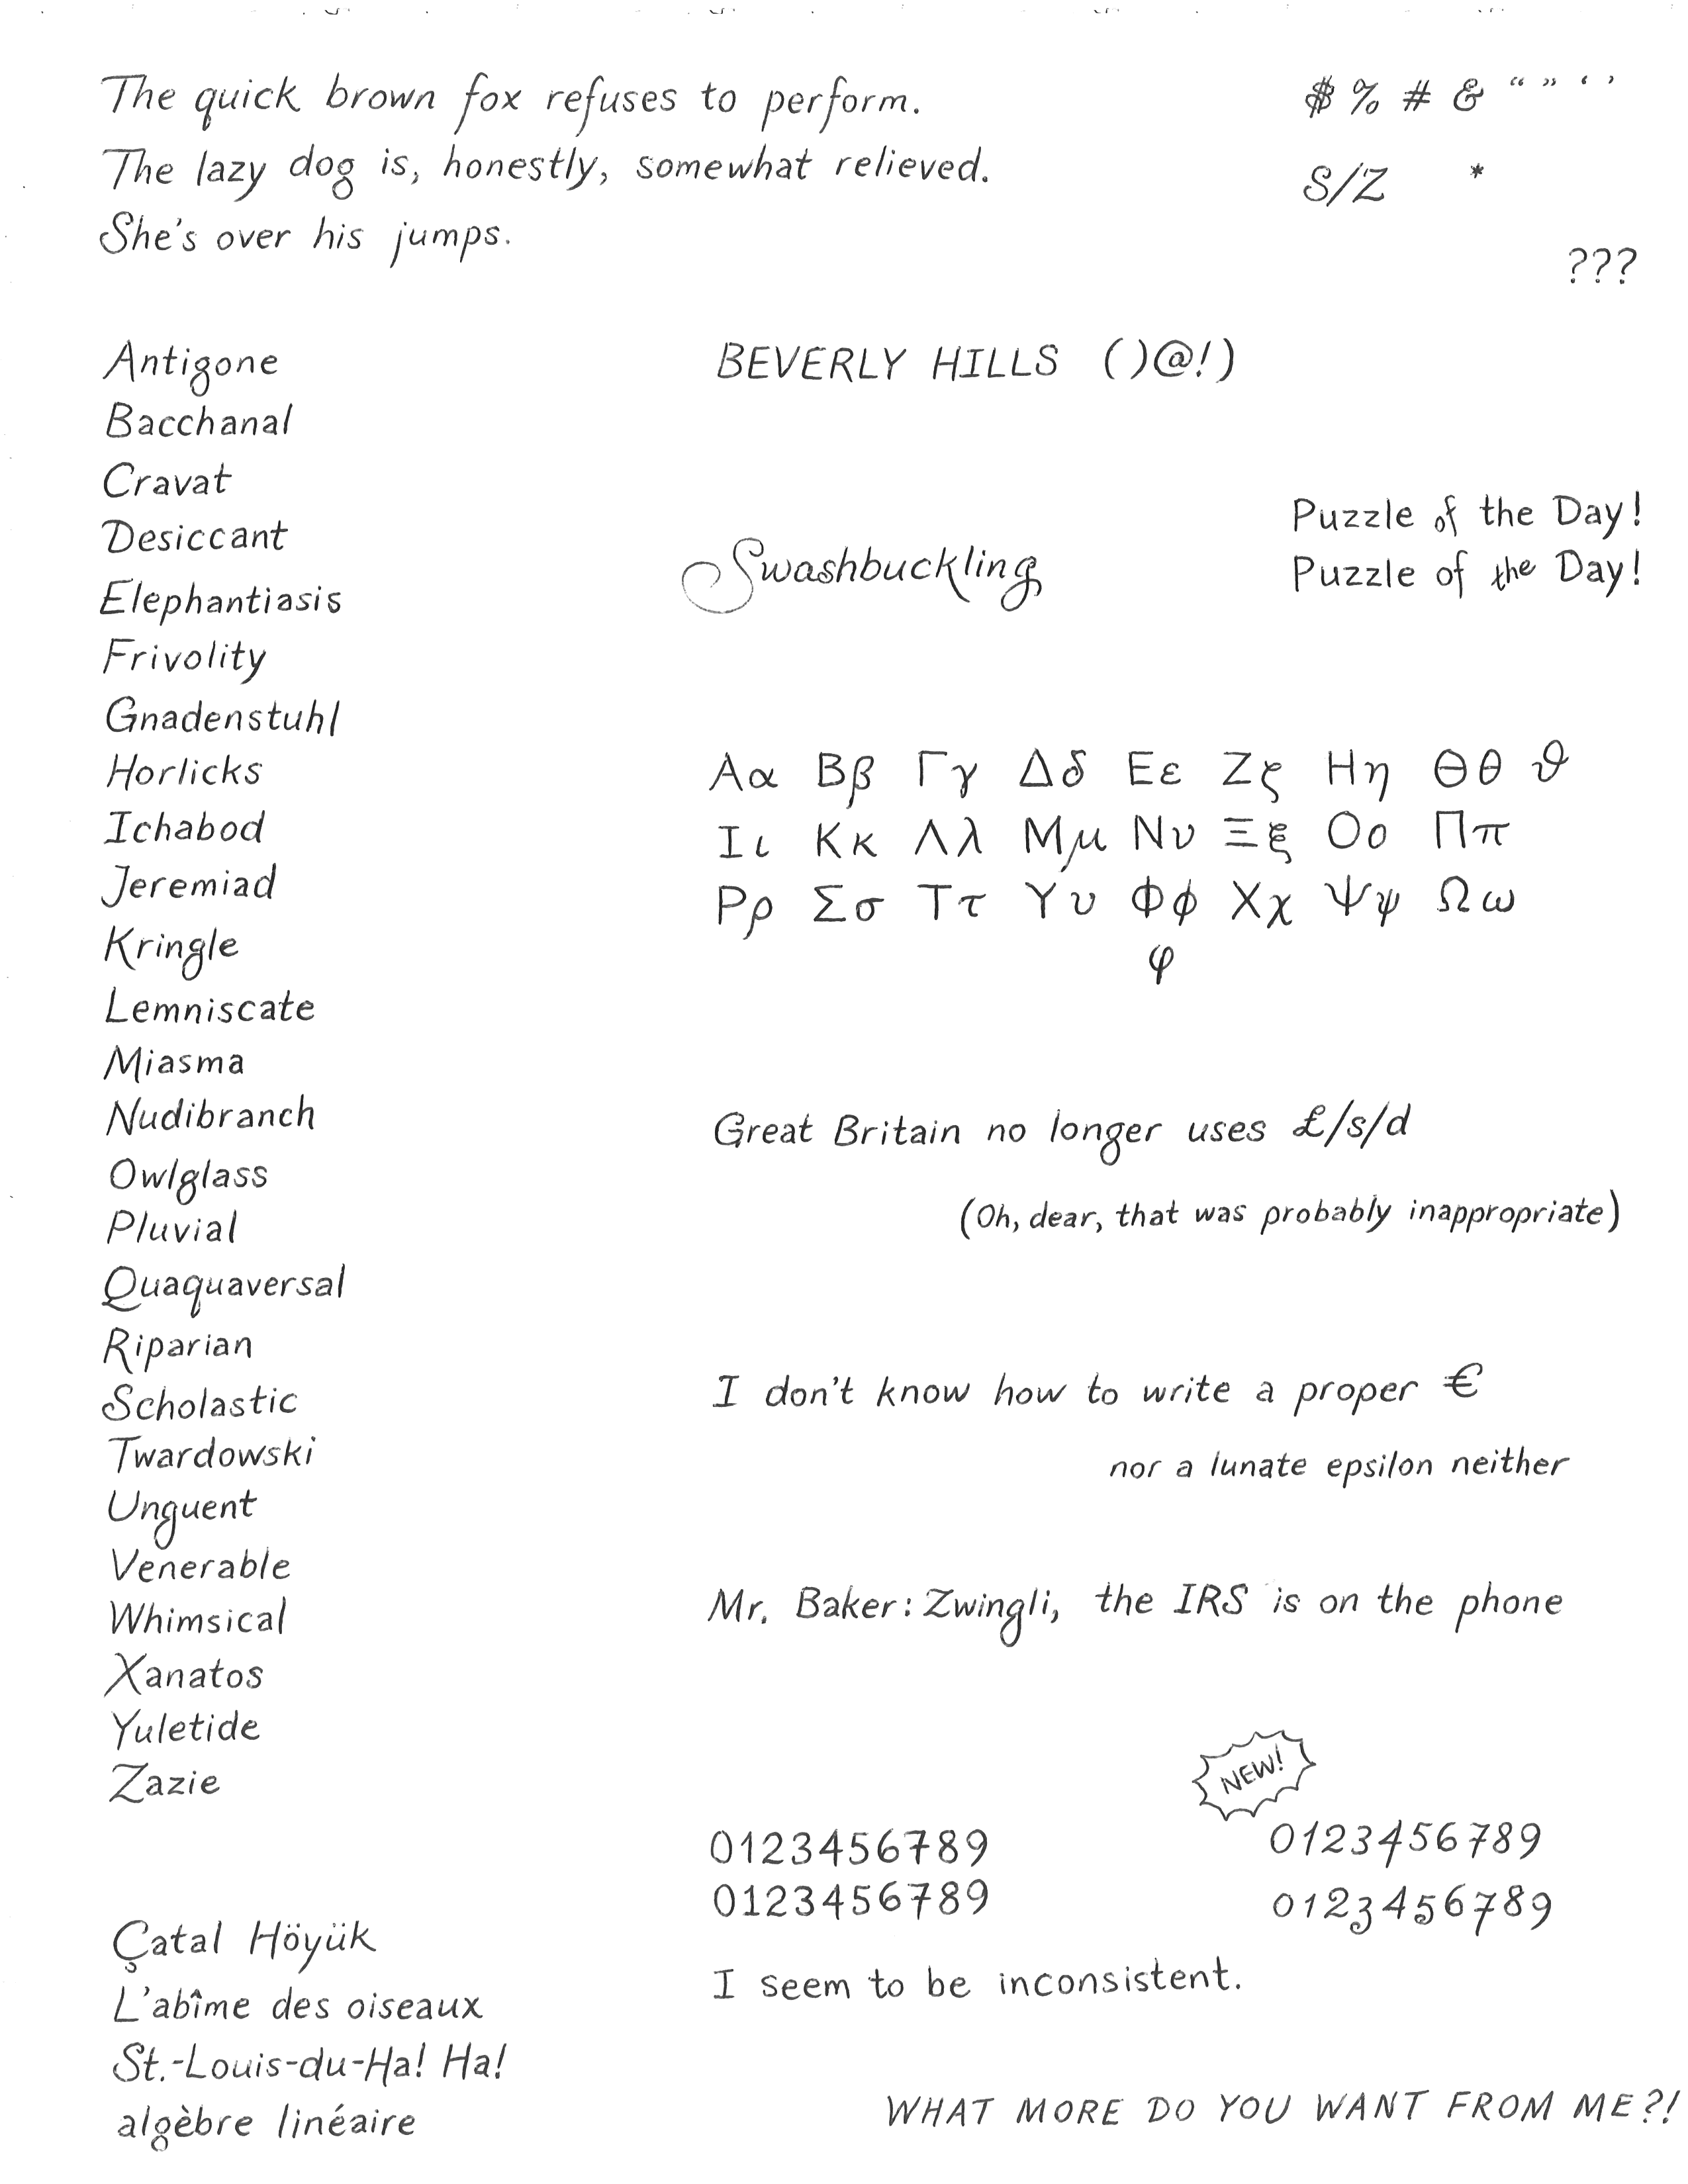 The quick brown fox refuses to perform.
The lazy dog is, honestly, somewhat relieved.
She's over his jumps.
$ % # & “ ” ‘ ’
S/Z *
???
Antigone
Bacchanal
Cravat
Desiccant
Elephantiasis
Frivolity
Gnadenstuhl
Horlicks
Ichabod
Jeremiad
Kringle
Lemniscate
Miasma
Nudibranch
Owlglass
Pluvial
Quaquaversal
Riparian
Scholastic
Twardowski
Unguent
Venerable
Whimsical
Xanatos
Yuletide
Zazie
Çatal Höyük
L'abîme des oiseaux
St.-Louis-du-Ha! Ha!
algèbre linéaire
BEVERLY HILLS ( )@!)
Swashbuckling
Puzzle of the Day!
Puzzle of the Day!
Αα Ββ Γγ Δδ Εε Ζζ Ηη Θθ ϑ
Ιι Κκ Λλ Μμ Νν Ξξ Οο Ππ
Ρρ Σσ Ττ Υυ Φϕ Χχ Ψψ Ωω
φ
Great Britain no longer uses £/s/d
(Oh, dear, that was probably inappropriate)
I don't know how to write a proper €
nor a lunate epsilon neither
Mr. Baker: Zwingli, the IRS is on the phone
NEW!
0123456789
0123456789
0123456789
0123456789
I seem to be inconsistent.
WHAT MORE DO YOU WANT FROM ME?!